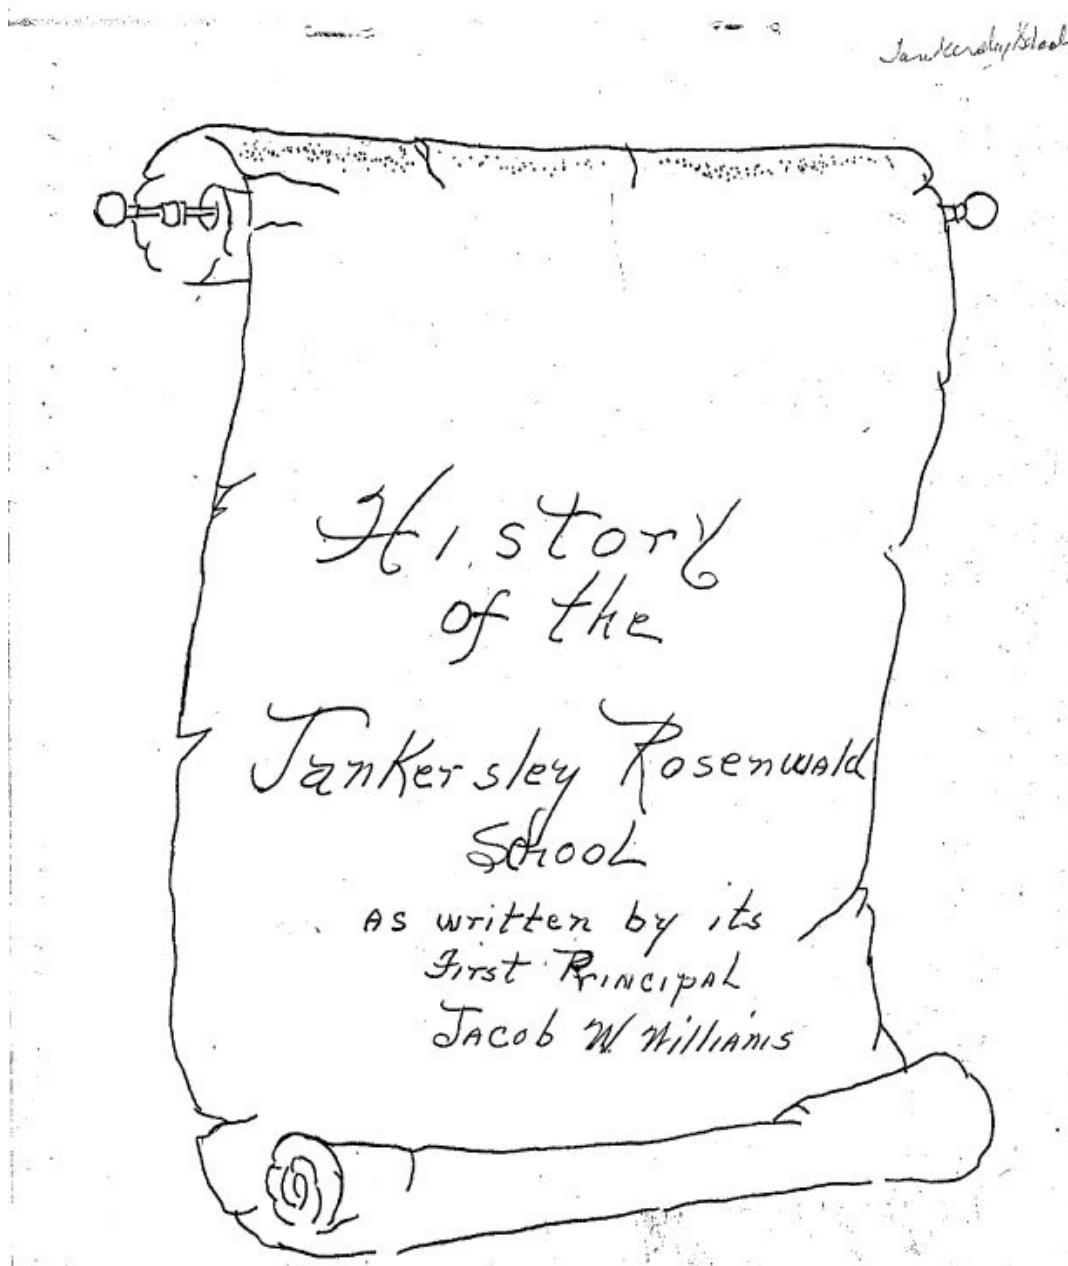 Tankersley School
History
of the
Tankersley Rosenwald
School
As written by its
First Principal
Jacob W. Williams